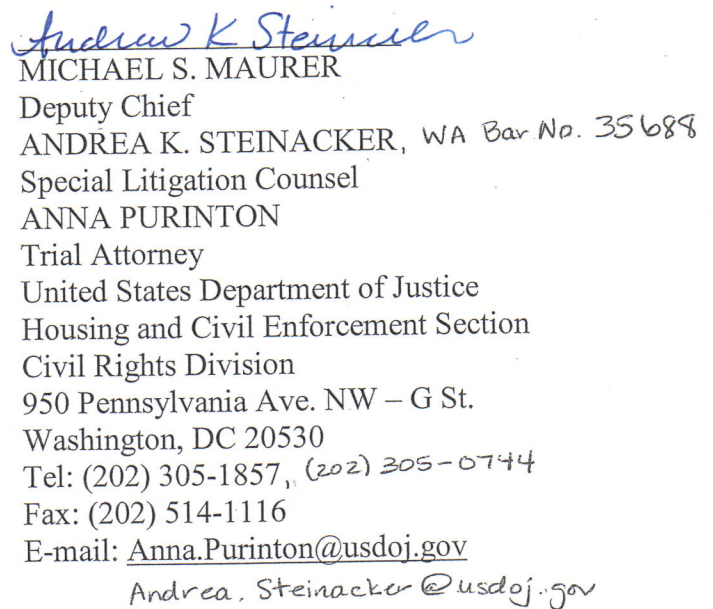 Andrea K Steinacker
MICHAEL S. MAURER
Deputy Chief
ANDREA K. STEINACKER, WA Bar No. 35688
Special Litigation Counsel
ANNA PURINTON
Trial Attorney
United States Department of Justice
Housing and Civil Enforcement Section
Civil Rights Division
950 Pennsylvania Ave. NW – G St.
Washington, DC 20530
Tel: (202) 305-1857, (202) 305-0744
Fax: (202) 514-1116
E-mail: Anna.Purinton@usdoj.gov
Andrea.Steinacker@usdoj.gov